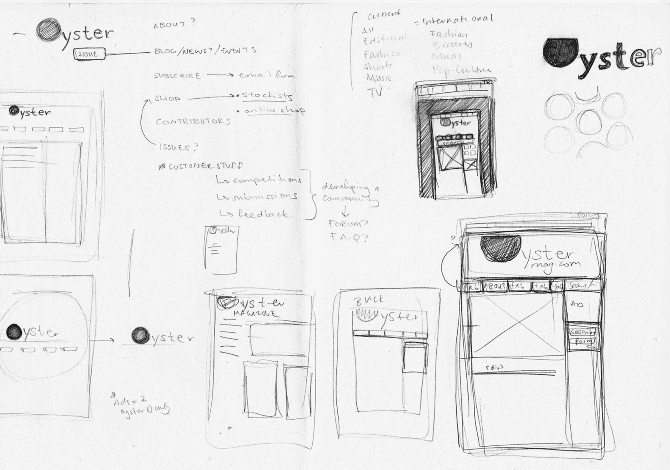 Oyster
HOME
ABOUT?
BLOG/NEWS?/EVENTS
SUBSCRIBE → email form
SHOP → • stockists
• online shop
CONTRIBUTORS
ISSUES?
* CUSTOMER STUFF
↳ competitions
↳ submissions
↳ feedback
developing a
community
↓
FORUM?
F.A.Q?
Current
All
Editorial
Fashion
Music
TV
= International
Fashion
Beauty
Music
Pop Culture
Oyster
Oyster
Oyster
Oyster
Oyster
Oyster
* Ads = 2
Oyster
MAGAZINE
BLACK
Oyster
Oyster
mag.com
ABOUT
Search
Ads